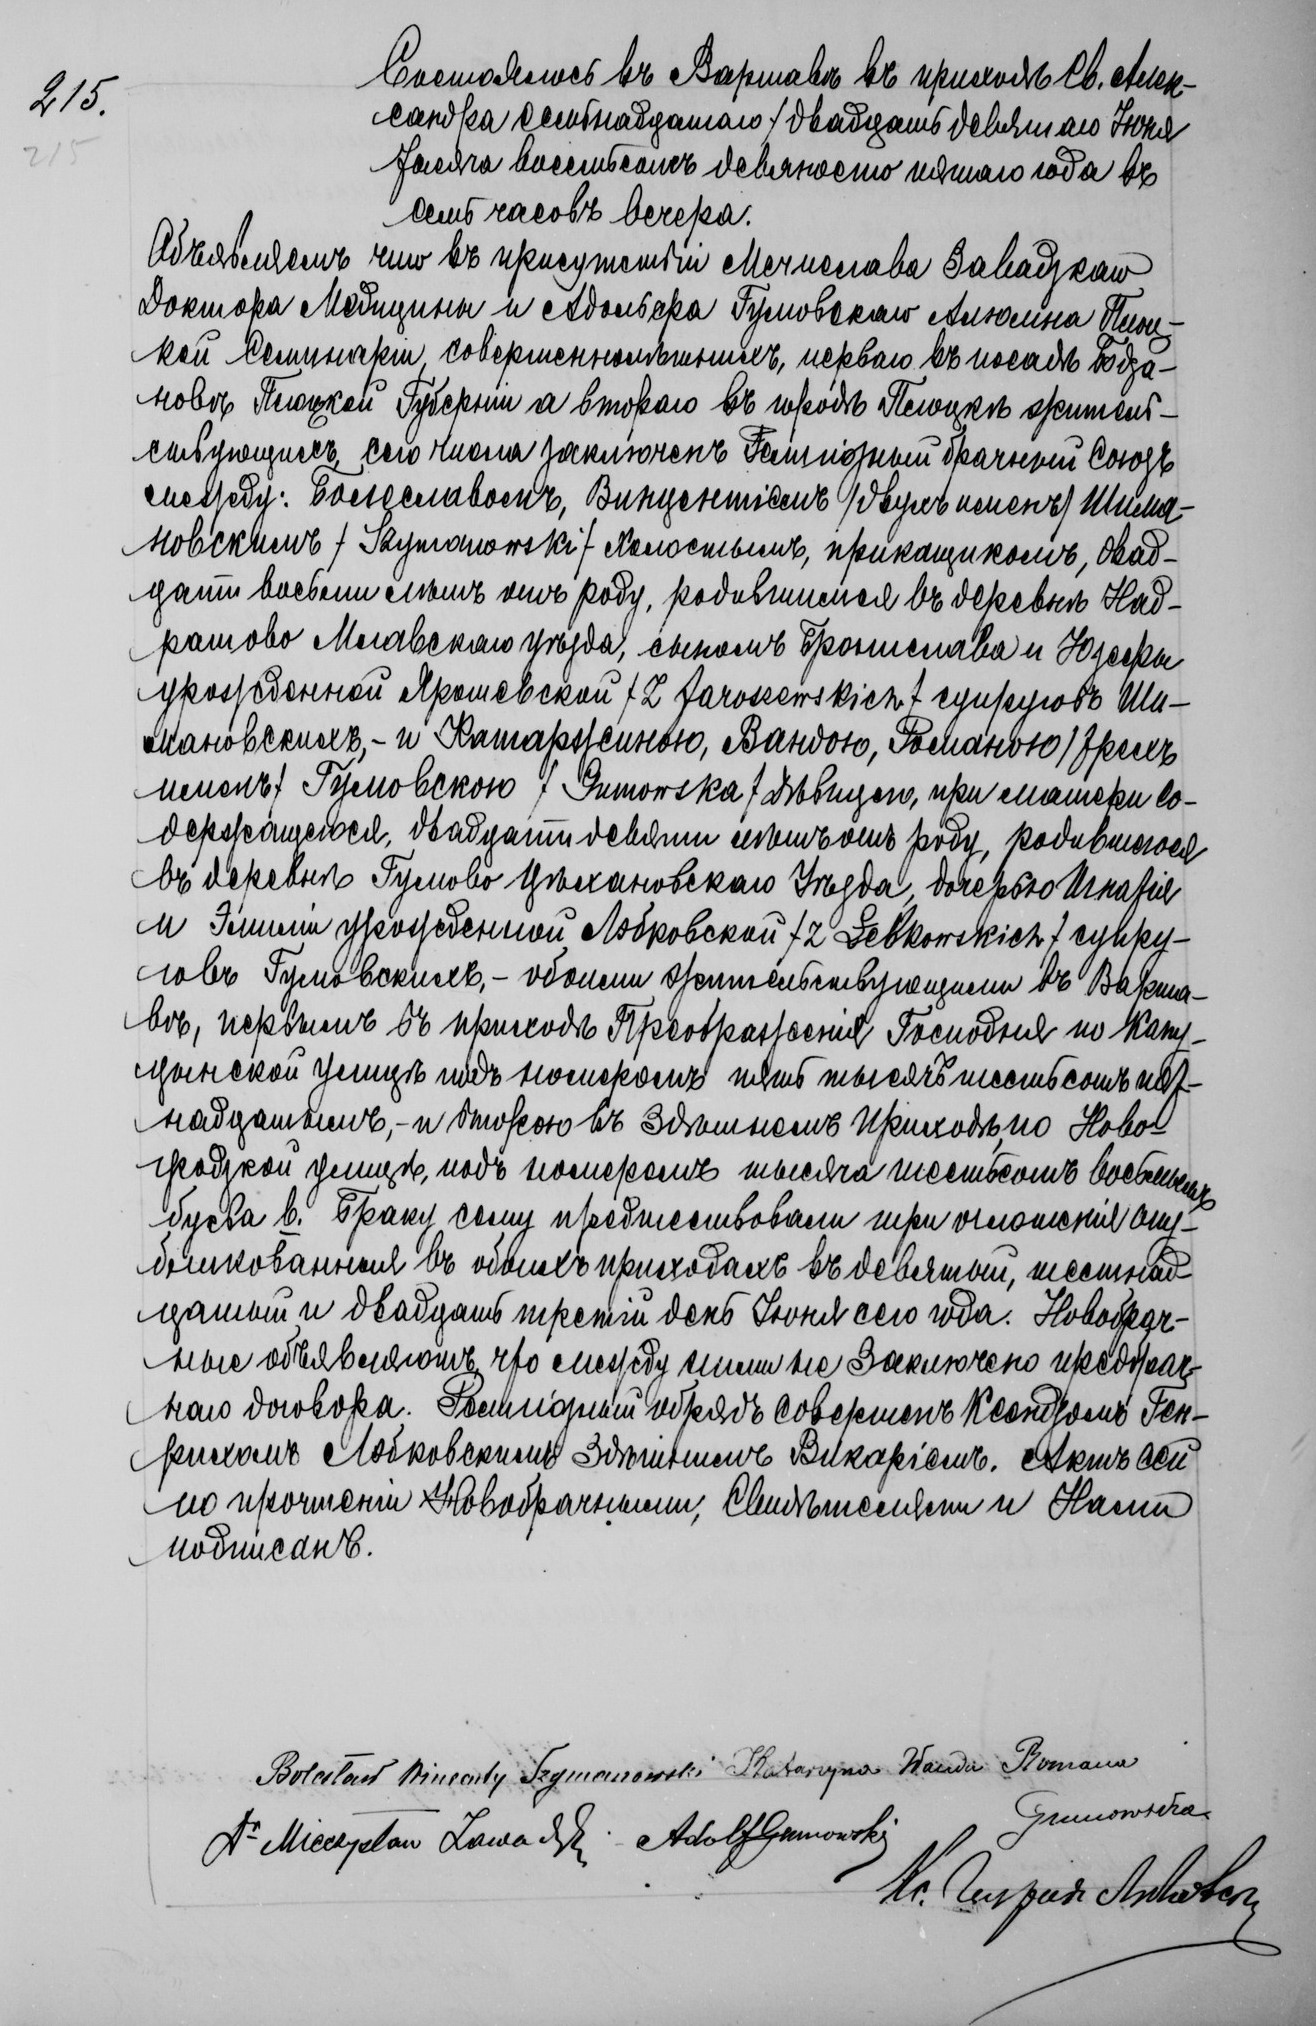 215.
215
Состоялось въ Варшавѣ въ приходѣ Св. Алек-
сандра семьнадцатаго / двадцать девятаго Іюня
тысяча восемьсотъ девяносто пятаго года въ
семь часовъ вечера.
Объявляемъ что въ присутствіи Мечислава Завадзкаго
Доктора Медицины и Адольфа Гумовскаго Алюмна Плоц-
кой Семинаріи, совершеннолѣтнихъ, перваго въ посадѣ Бодза-
новѣ Плоцкой Губерніи а втораго въ городѣ Плоцкѣ житель-
ствующихъ, сего числа заключенъ Религіозный брачный Союзъ
между: Болеславомъ, Винцентіемъ /двухъ именъ/ Шима-
новскимъ / Szymanowski / холостымъ, прикащикомъ, двад-
цати восьми лѣтъ отъ роду, родившимся въ деревнѣ Над-
ратово Млавскаго уѣзда, сыномъ Бронислава и Юзефы
урожденной Ярошевской / z Jaroszewskich / супруговъ Ши-
мановскихъ, - и Катаржиною, Вандою, Романою / трехъ
именъ / Гумовскою / Gumowska / дѣвицею, при матери со-
держащеюся, двадцати девяти лѣтъ отъ роду, родившеюся
въ деревнѣ Гумово Цѣхановскаго Уѣзда, дочерью Игнатія
и Эмиліи урожденной Лэбковской / z Łebkowskich / супру-
говъ Гумовскихъ, - обоими жительствующими въ Варша-
вѣ, первымъ въ приходѣ Преображенія Господня по Капу-
цынской улицѣ подъ номеромъ пять тысячъ шестьсотъ пят-
надцатымъ, - и второю въ Здѣшнемъ приходѣ, по Ново-
гродзкой улицѣ, подъ номеромъ тысяча шестьсотъ восьмымъ
буква в. Браку сему предшествовали три оглашенія опу-
бликованныя въ обоихъ приходахъ въ девятый, шестнад-
цатый и двадцать третій день Іюня сего года. Новобрач-
ные объявляютъ что между ними не Заключено предбрач-
наго договора. Религіозный обрядъ совершенъ Ксендзомъ Ген-
рихомъ Лэбковскимъ Здѣшнимъ Викаріемъ. Актъ сей
по прочтеніи Новобрачными, Свидѣтелями и Нами
подписанъ.
Bolesław Wincenty Szymanowski Katarzyna Wanda Romana
Gumowska
Dr Mieczysław Zawadzki Adolf Gumowski
Кс. Генрихъ Лэбковскі